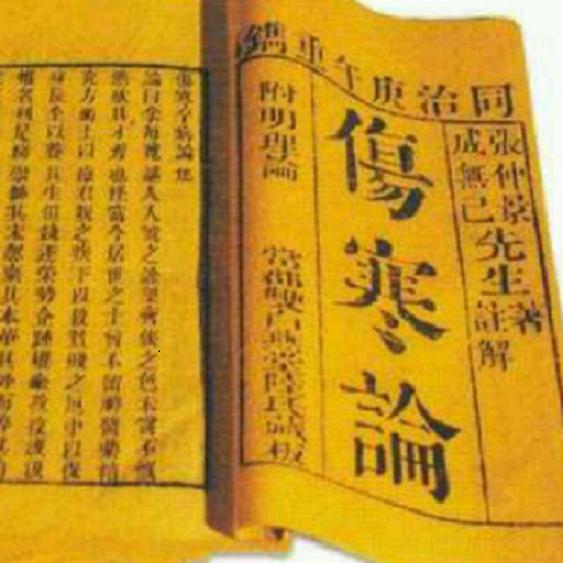 同治庚午重鐫
張仲景先生著
成無己註解
傷寒論
附明理論
常郡雙白燕堂陸氏藏板
傷寒卒病論集
論曰余每覽越人入虢之診望齊侯之色未嘗不慨
然歎其才秀也怪當今居世之士曾不留神醫藥精
究方術上以療君親之疾下以救貧賤之厄中以保
身長全以養其生但競逐榮勢企踵權豪孜孜汲汲
惟名利是務崇飾其末忽棄其本華其外而悴其內